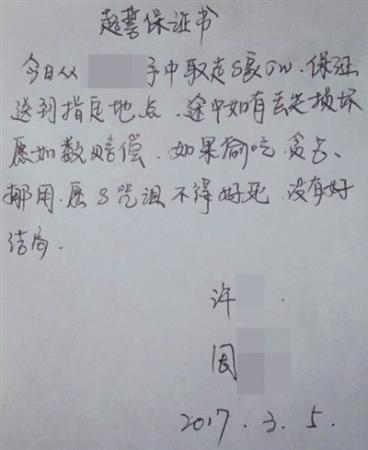 起誓保证书
今日从 手中取走 保证
送到指定地点、途中如有丢失损坏
愿如数赔偿、如果偷吃、贪占、
挪用、愿S咒诅不得好死、没有好
结局.
许
因
2017.3.5.